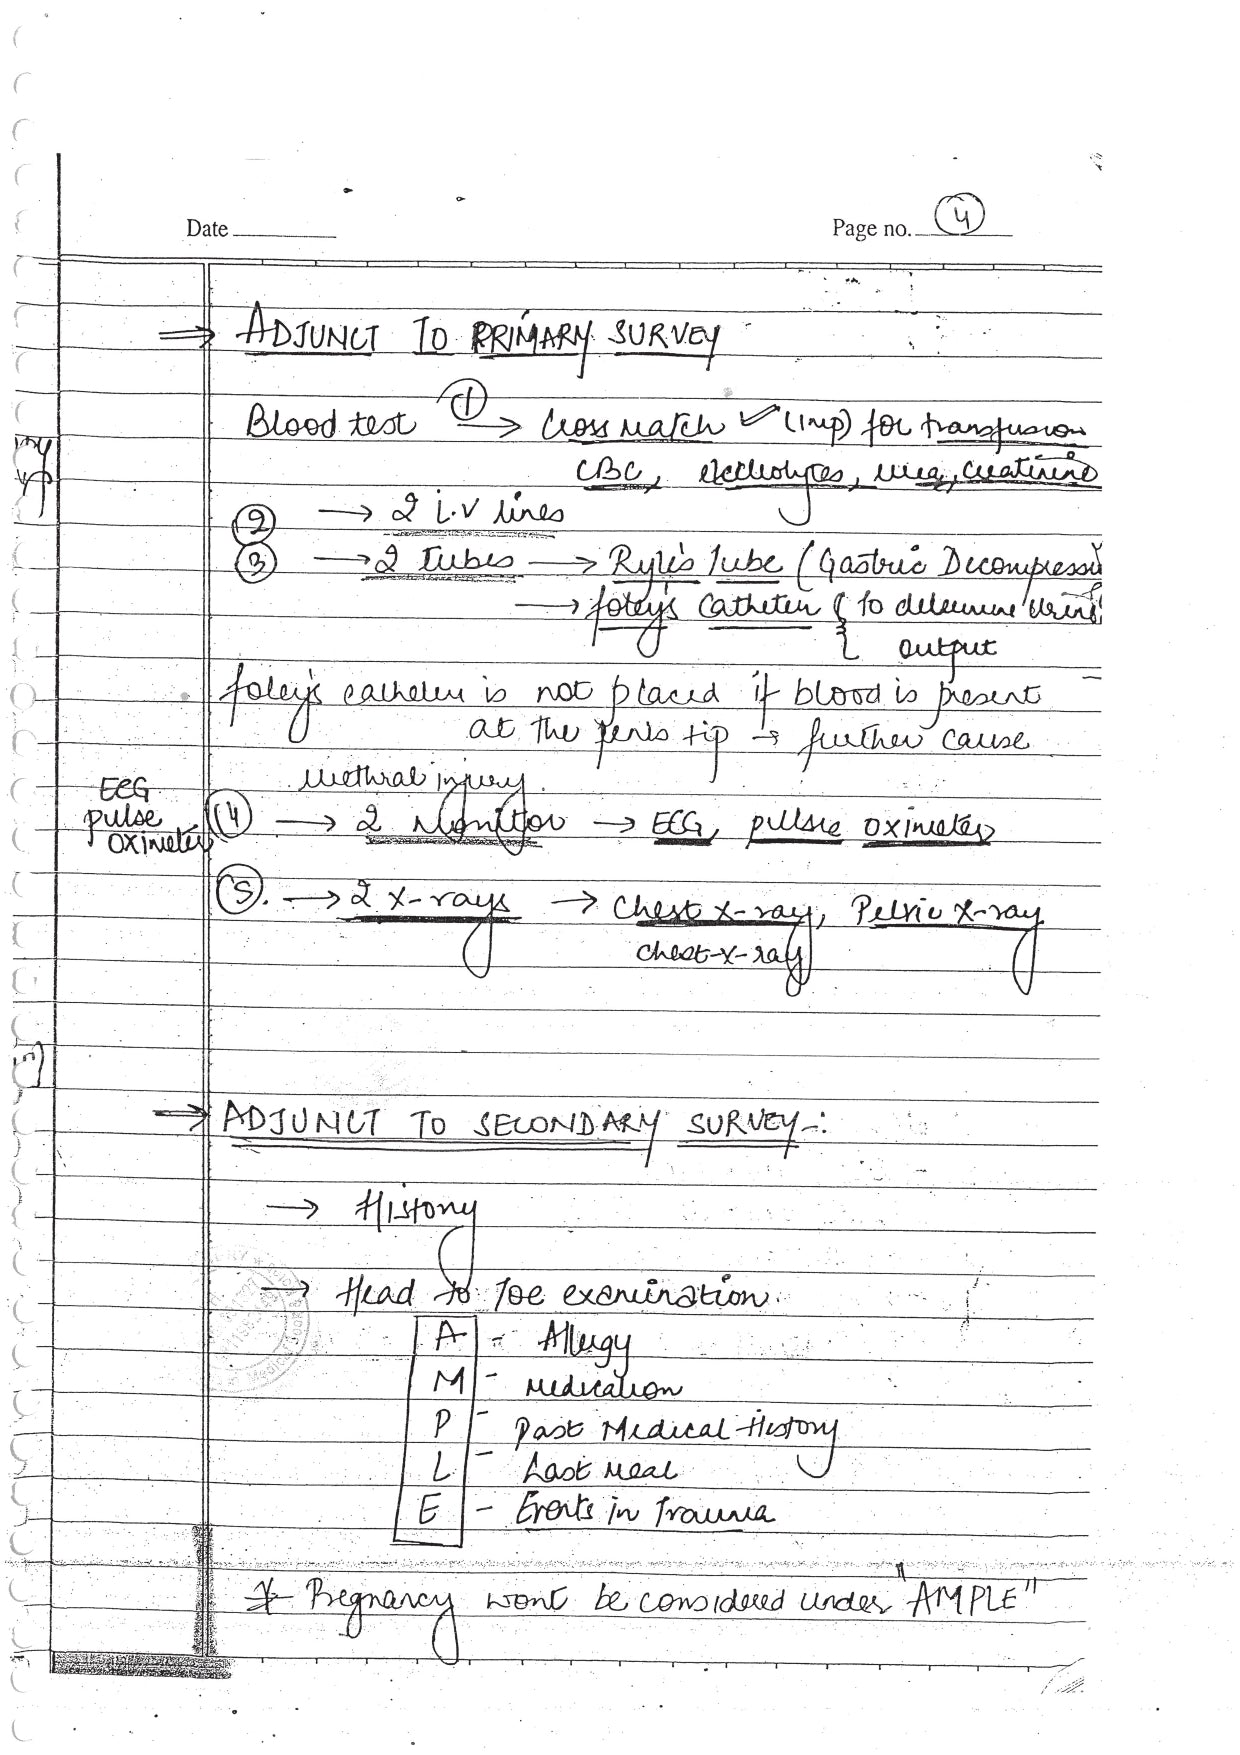 Date
Page no. 4
⇒ ADJUNCT TO PRIMARY SURVEY
Blood test ① → Cross match ✓ (imp) for transfusion
CBC, electrolytes, urea, creatinine
② → 2 i.v lines
③ → 2 Tubes → Ryle's Tube (Gastric Decompressi
→ foley's Catheter { to determine urine
output
foley's catheter is not placed if blood is present
at the penis tip → further cause
urethral injury.
ECG
pulse
oximeter
④ → 2 Monitor → ECG, pulse oximeter
⑤. → 2 X-rays → Chest X-ray, Pelvic X-ray
Chest-X-ray
⇒ ADJUNCT TO SECONDARY SURVEY-:
→ History
→ Head to Toe examination.
A - Allergy
M - Medication
P - Past Medical History
L - Last Meal
E - Events in Trauma
* Pregnancy wont be considered under "AMPLE"